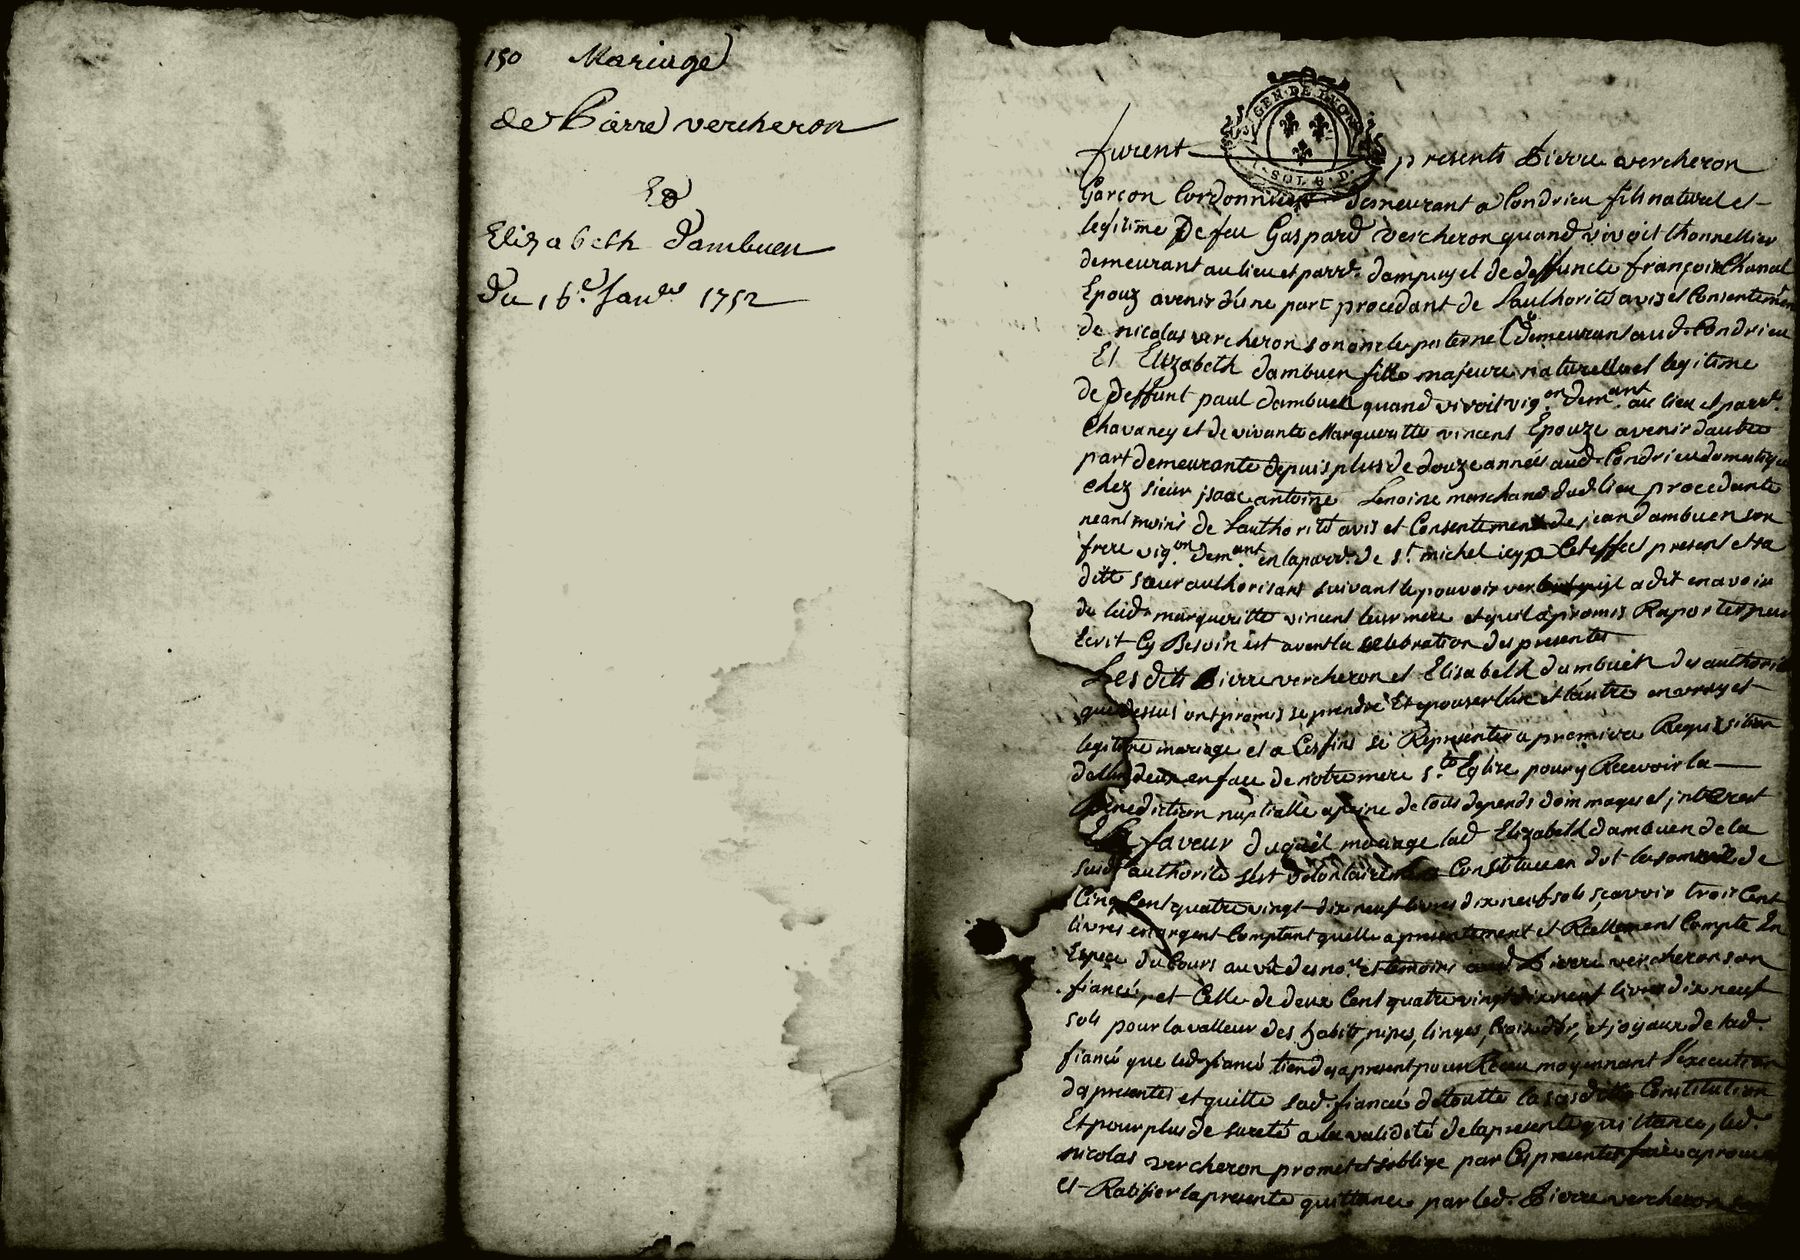 150 Mariage
de Pierre vercheron
Et
Elizabeth Dambuen
Du 16e Janvr 1752
GEN·DE LYON
SOL 8·D·
furent presents Pierre vercheron
Garçon Cordonnier demeurant a Condrieu fils naturel et
legitime De feu Gaspard Vercheron quand vivoit thonnellier
demeurant au lieu et parrse dampuy et de deffuncte françoise Chanal
Epouz avenir d'une part procedant de Lauthorité avis et Consentement
de nicolas vercheron son oncle paternel demeurant aud. Condrieu
Et Elizabeth dambuen fille majeure naturelle et legitime
de deffunt paul dambuen quand vivoit vigon demant au lieu et parrse
Chavaney et de vivante Margueritte vincent Epouze avenir dautre
part demeurante depuis plus de douze années aud. Condrieu domestique
chez sieur jsaac antoine Lenoine marchand dud. lieu procedante
neantmoins de Lauthorité avis et Consentement de jean dambuen son
frere vigon demant en la parrse de st michel icy a Cet effet present et sa
ditte sœur authorisant suivant le pouvoir verbal quil a dit en avoir
de lad. margueritte vincent leur mere et quil a promis Raporter par
Ecrit Cy Besoin est avent la celebration des presentes
Lesdits Pierre vercheron et Elisabeth dambuen des authorités
que dessus ont promis se prendre Et epouser l'un et l'autre en vray et
legitime mariage et a Ces fins se Representer a premiere Requisition
de l'un deux en face de notre mere ste Eglise pour y Recevoir la
Benediction nuptialle a peine de tous depends dommages et jnterest
En faveur duquel mariage lad Elizabeth dambuen de la
susd. authorité sest volontairement Constituee en dot la somme de
Cinq Cent quatre vingt dix neuf livres dix neuf sols sçavoir trois Cent
livres en argent Comptant quelle a presentement et Reellement Compté En
Espece du Cours au vû des nores et temoins aud. Pierre vercheron son
fiancé, et Celle de deux Cent quatre vingt dix neuf livres dix neuf
sols pour la valleur des habits, nipes, linges, Croix d'or, et joyaux de lad.
fiancé que led. fiancé tiend a present pour Receu moyennant l'execution
des presentes et quitte sad. fiancée de toutte la susditte Constitution
Et pour plus de sureté a la validité de la presente quittance, led.
nicolas vercheron promet et soblige par Ces presentes faire aprouver
et Ratifier la presente quittance par led. Pierre vercheron